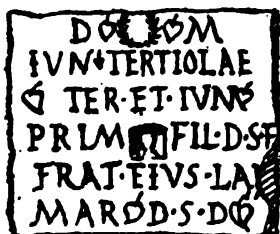 D M
IVN TERTIOLAE
TER·ET·IVN
PRIM FIL·D·S
FRAT·EIVS·LA
MAROD·S·D